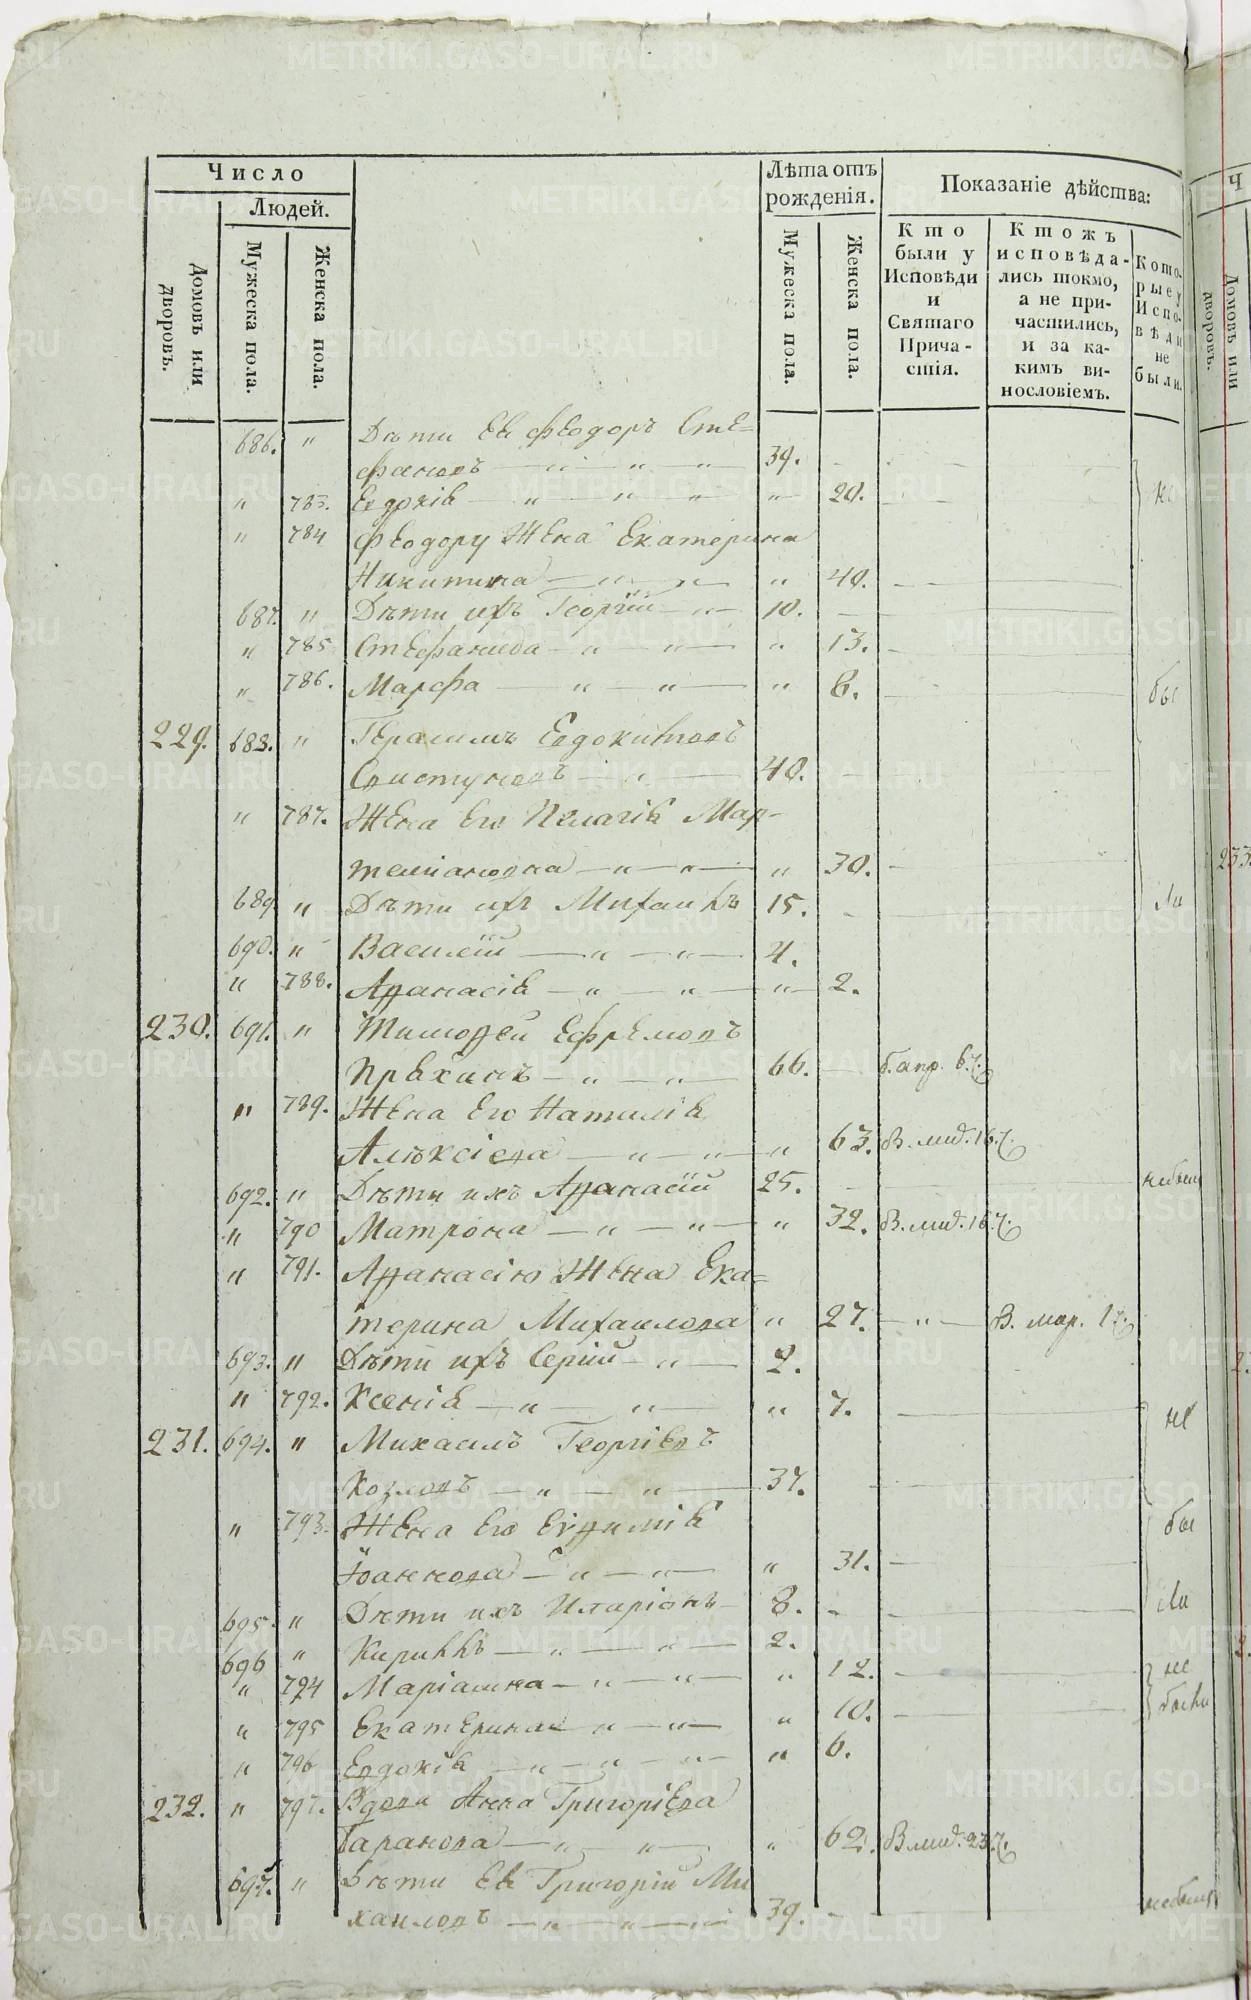 Число
Людей.
Домовъ или дворовъ.
Мужеска пола.
Женска пола.
Лѣта отъ рожденія.
Мужеска пола.
Женска пола.
Показаніе дѣйства:
Кто были у Исповѣди и Святаго Причастія.
Ктожъ исповѣдались токмо, а не причастились, и за какимъ винословіемъ.
Которые у Исповѣди не были.
686. " Дѣти Ея Феодоръ Сте=
фановъ — " — " — " 39.
" 783. Евдокія — " — " — " " 20. не
" 784 Феодору Жена Екатерина
Никитина — " — " — " 40.
687. " Дѣти ихъ Георгій — " — 10.
" 785 Стефанида — " — " — " 13.
" 786. Марфа — " — " — " 6. бы
229. 688. " Герасимъ Евдокимовъ
Свистуновъ — " — 40.
" 787. Жена Его Пелагія Мар-
темiановна — " — " — " 30.
689 " Дѣти ихъ Михаилъ 15. ли
690. " Василій — " — " — 4.
" 788. Аѳанасія — " — " — " 2.
230. 691. " Тимоѳей Ефремовъ
Пряхинъ — " — " — 66. б. апр. 6.
" 789. Жена Его Наталія
Алѣксіева — " — " — " 63. В. мић. 16.
692. " Дѣти ихъ Аѳанасій 25. небыли
" 790 Матрона — " — " — " 32. В. 16.
" 791. Аѳанасію Жена Ека=
терина Михаилова " 27. — " — В. мар. 1
693. " Дѣти ихъ Сергій — " — 2.
" 792. Ксенія — " — " — " 7. не
231. 694. " Михаилъ Георгіевъ
Козловъ — " — " — 37.
" 793. Жена Его Евѳимія бы
Іоаннова — " — " — " 31.
695. " Дѣти ихъ Иларіонъ — 8. ли
696 " Кириллъ — " — " — 2.
" 794 Маріамна — " — " — " 12. не
" 795 Екатерина — " — " " 10. были
" 796 Евдокія — " — " — " " 6.
232. " 797. Вдова Анна Григоріева
Таранова — " — " — " 62. В. 23.
697. " Дѣти Ея Григорій Ми
хаиловъ — " — " — " 39. небыли
Ч
Домовъ или дворовъ.
233.
METRIKI.GASO-URAL.RU